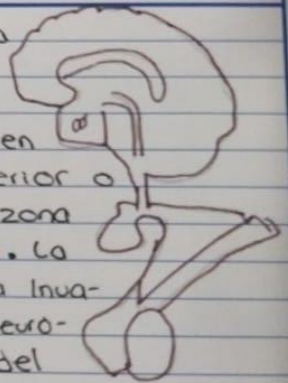 en
erior o
zona
. La
Inva-
euro-
del